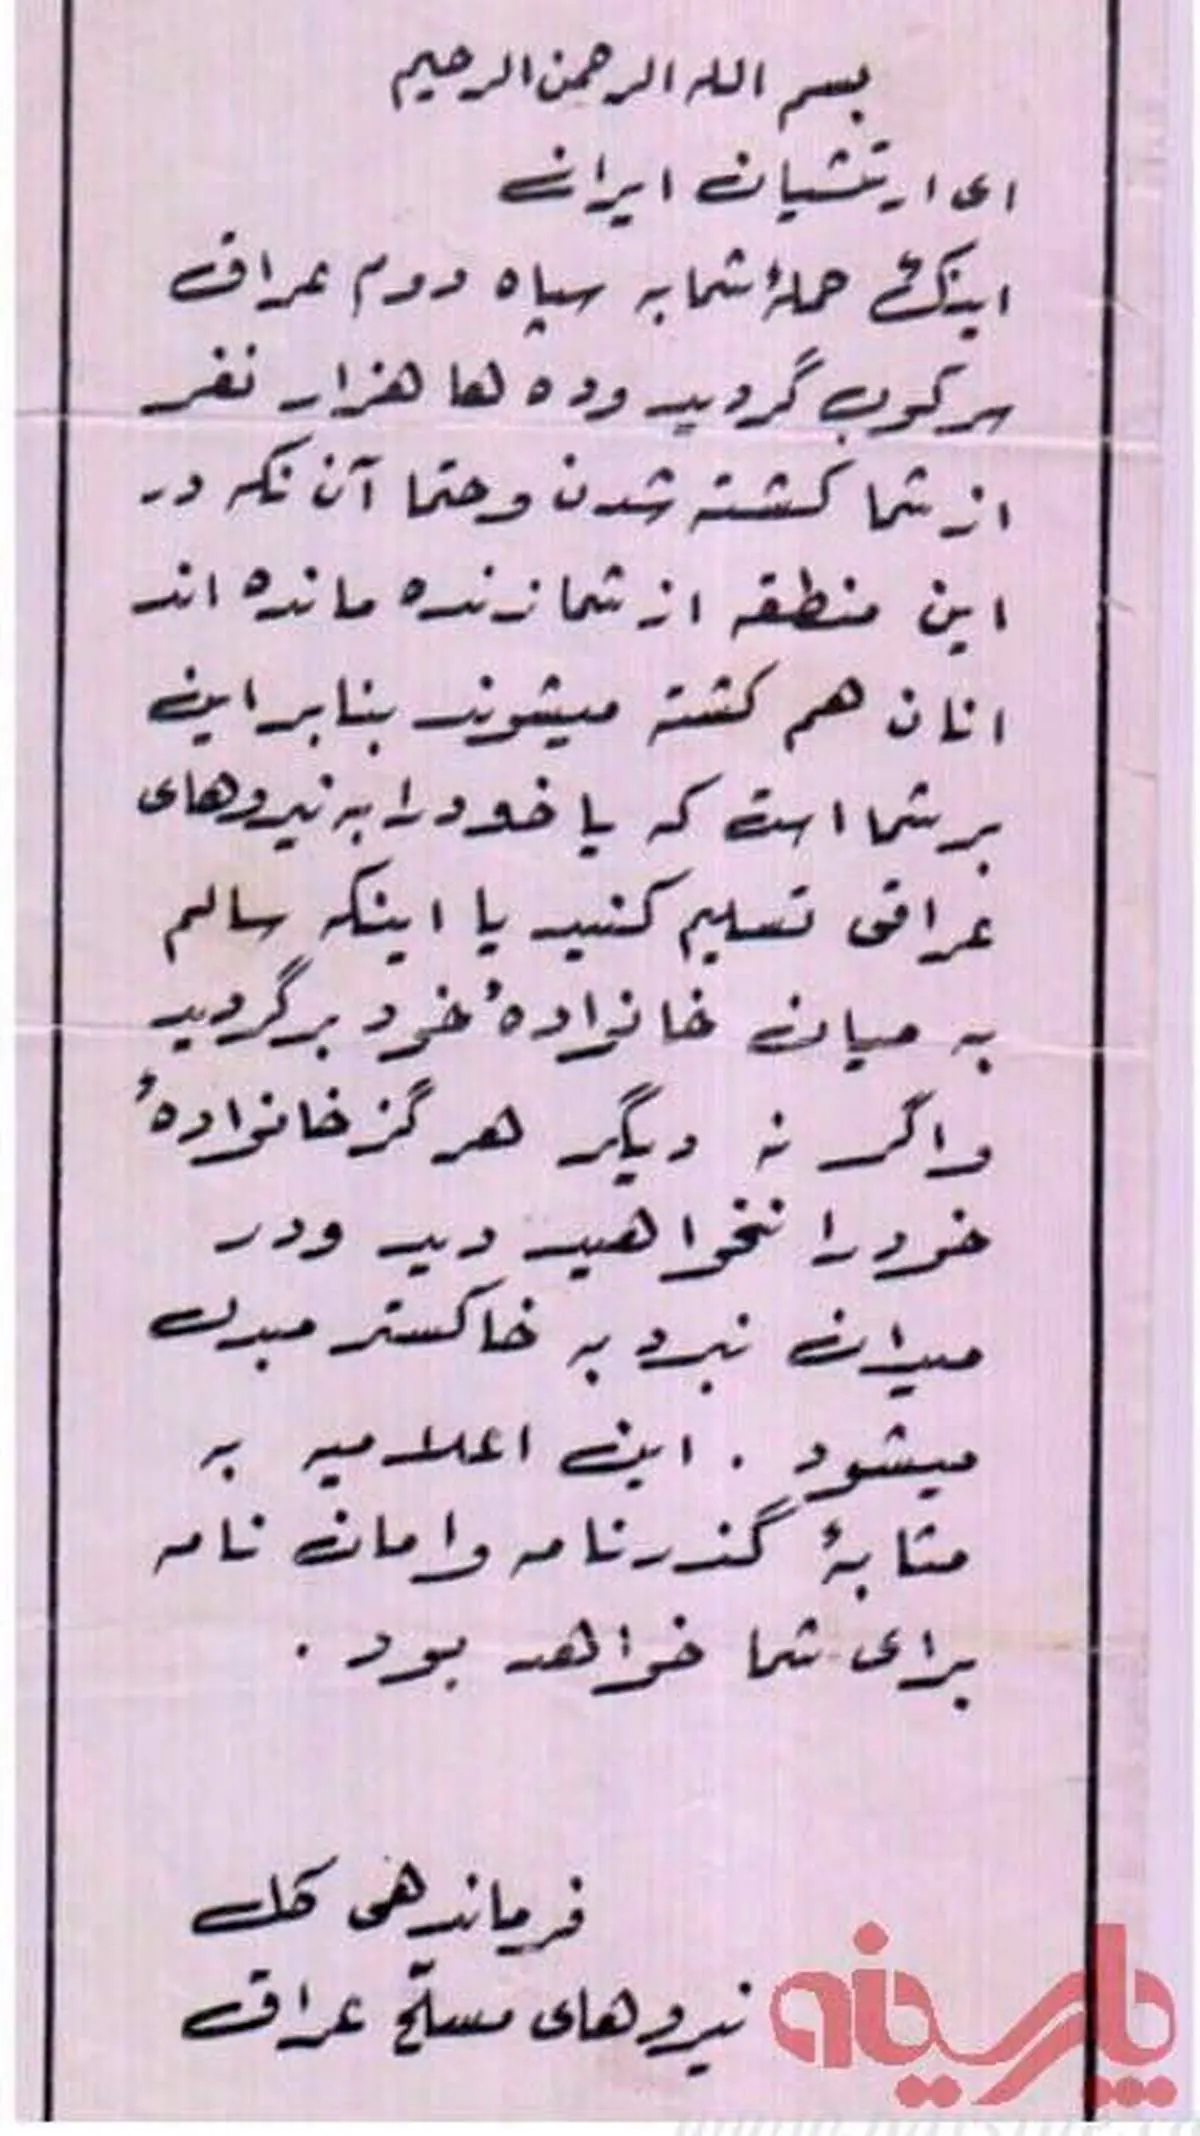 بسم الله الرحمن الرحیم
ای ارتشیان ایران
اینک حملۀ شما به سپاه دوم عراق
سرکوب گردید وده ها هزار نفر
از شما کشته شدن وحتما آن نکه در
این منطقه از شما زنده مانده اند
انان هم کشته میشوند بنابراین
بر شما است که یا خود را به نیروهای
عراقی تسلیم کنید یا اینکه سالم
به میان خانوادهٔ خود برگردید
واگر نه دیگر هرگز خانوادهٔ
خود را نخواهید دید ودر
میدان نبرد به خاکستر مبدل
میشود . این اعلامیه به
مثابۀ گذرنامه وامان نامه
برای شما خواهد بود .
فرماندهی کل
نیروهای مسلح عراق
پارسینه